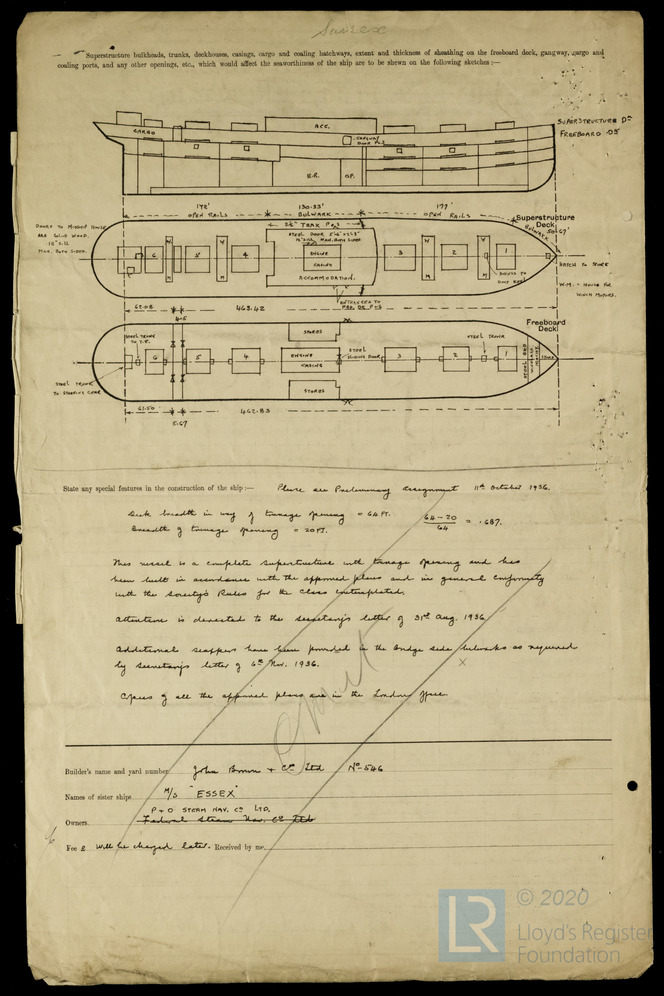 Sussex
Superstructure bulkheads, trunks, deckhouses, casings, cargo and coaling hatchways, extent and thickness of sheathing on the freeboard deck, gangway, cargo and
coaling ports, and any other openings, etc., which would affect the seaworthiness of the ship are to be shewn on the following sketches :—
ACC.
SUPERSTRUCTURE DK
CARGO
DOOR P&S
FREEBOARD DK
E.R.
OP.
172'
130.33'
177'
OPEN RAILS
BULWARK
OPEN RAILS
Superstructure
Deck
BULWARK
ARE SOLID WOOD.
6
5
4
ENGINE
CASING
3
2
1
HATCH TO STORE
ACCOMMODATION.
W.M. = HOUSE FOR
WINCH MOTORS.
62.08
463.42
4.5
Freeboard
Deck
STORES
STEEL TRUNK
6
5
4
ENGINE
CASING
STEEL
SLIDING DOOR
3
2
1
STORE
STEEL TRUNK
TO STEERING GEAR
STORES
61.50
462.83
5.67
State any special features in the construction of the ship :— Please see Preliminary assignment 11th October 1936.
Deck breadth in way of tonnage opening = 64 FT. 64 - 20 / 64 = .687.
Breadth of tonnage opening = 20 FT.
This vessel is a complete superstructure with tonnage opening and has
been built in accordance with the approved plans and in general conformity
with the Society's Rules for the Class contemplated.
Attention is directed to the secretary's letter of 31st Aug. 1936
Additional scuppers have been provided in the bridge side bulwarks as required
by secretary's letter of 6th Nov. 1936. x
Copies of all the approved plans are in the London office.
Omit
Builder's name and yard number John Brown & Co Ltd No 546
Names of sister ships M/S "ESSEX"
P & O STEAM NAV. Co LTD.
Owners Federal Steam Nav. Co Ltd
Fee £ Will be charged later. Received by me,
LR
© 2020
Lloyd's Register
Foundation